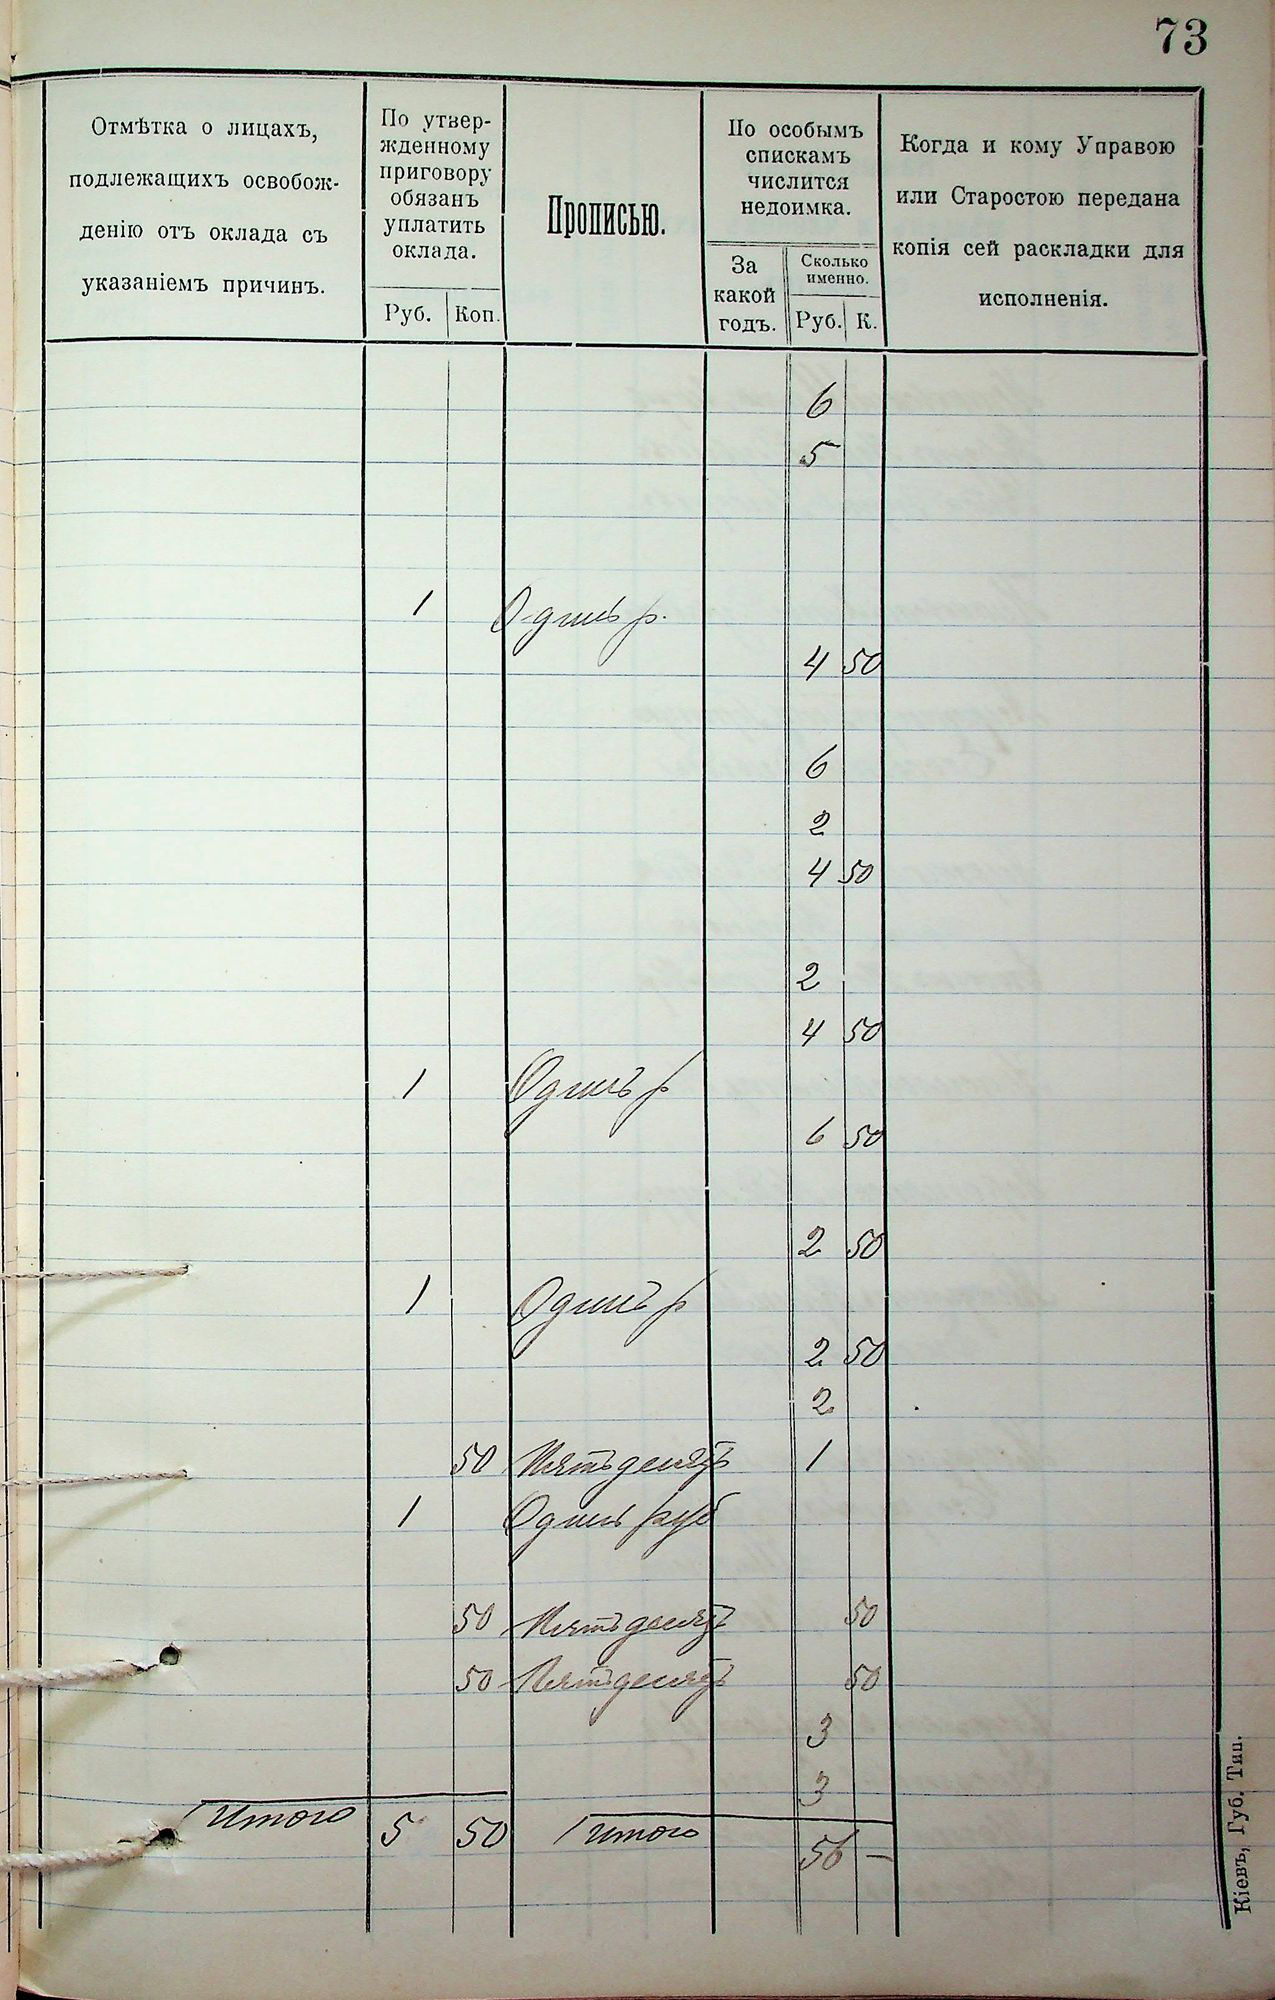 73
Отмѣтка о лицахъ,
подлежащихъ освобож-
денію отъ оклада съ
указаніемъ причинъ.
По утвер-
жденному
приговору
обязанъ
уплатить
оклада.
Руб. Коп.
Прописью.
По особымъ
спискамъ
числится
недоимка.
За
какой
годъ.
Сколько
именно.
Руб. К.
Когда и кому Управою
или Старостою передана
копія сей раскладки для
исполненія.
6
5
1 Одинъ р.
4 50
6
2
4 50
2
4 50
1 Одинъ р
6 50
2 50
1 Одинъ р
2 50
2
50 Пятьдесятъ 1
1 Одинъ руб
50 Пятьдесятъ 50
50 Пятьдесятъ 50
3
3
Итого 5 50 Итого 56 —
Кіевъ, Губ. Тип.